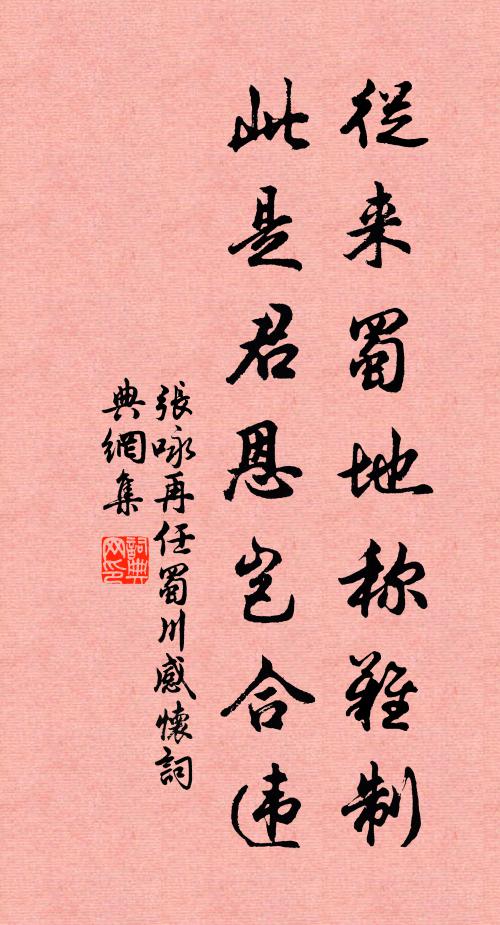 從来蜀地称難制
此是君恩岂合违
張咏再任蜀川感懷詞
典網集
詞典
网印